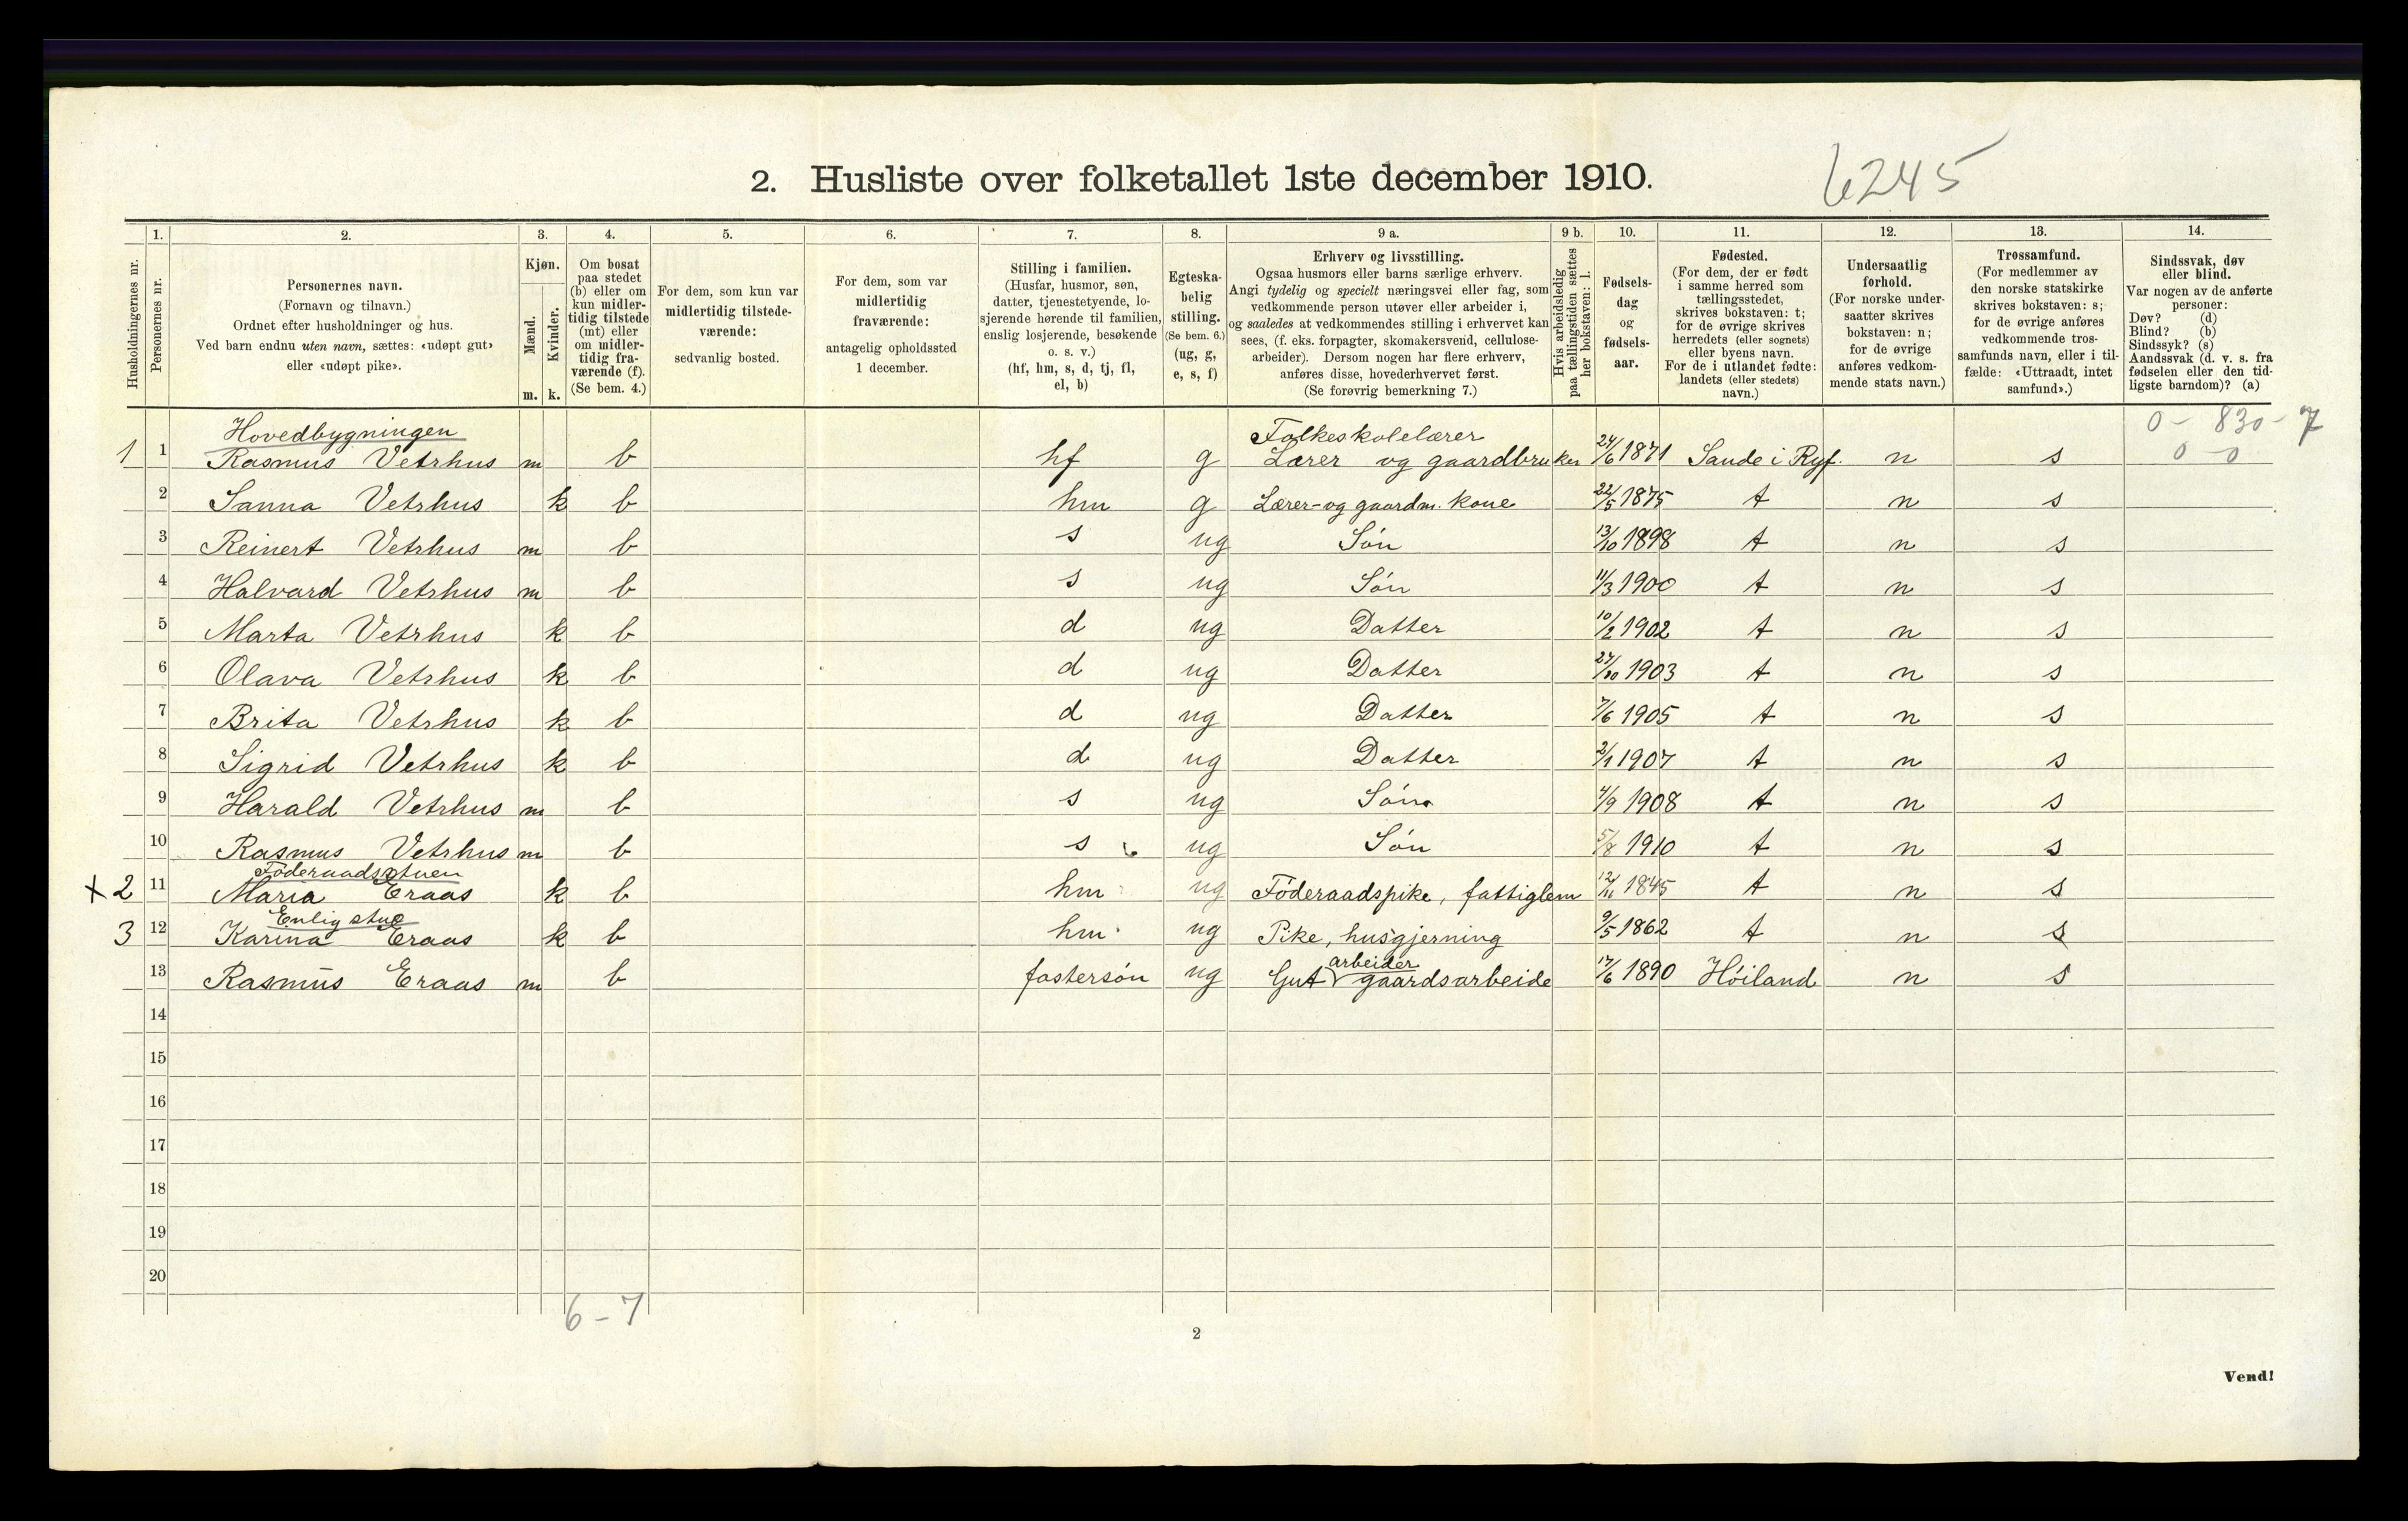 2. Husliste over folketallet 1ste december 1910.
6245
Husholdningernes nr.
1.
Personernes nr.
2.
Personernes navn.
(Fornavn og tilnavn.)
Ordnet efter husholdninger og hus.
Ved barn endnu uten navn, sættes: «udøpt gut»
eller «udøpt pike».
3.
Kjøn.
Mænd.
Kvinder.
m. k.
4.
Om bosat
paa stedet
(b) eller om
kun midler-
tidig tilstede
(mt) eller
om midler-
tidig fra-
værende (f).
(Se bem. 4.)
5.
For dem, som kun var
midlertidig tilstede-
værende:
sedvanlig bosted.
6.
For dem, som var
midlertidig
fraværende:
antagelig opholdssted
1 december.
7.
Stilling i familien.
(Husfar, husmor, søn,
datter, tjenestetyende, lo-
sjerende hørende til familien,
enslig losjerende, besøkende
o. s. v.)
(hf, hm, s, d, tj, fl,
el, b)
8.
Egteska-
belig
stilling.
(Se bem. 6.)
(ug, g,
e, s, f)
9 a.
Erhverv og livsstilling.
Ogsaa husmors eller barns særlige erhverv.
Angi tydelig og specielt næringsvei eller fag, som
vedkommende person utøver eller arbeider i,
og saaledes at vedkommendes stilling i erhvervet kan
sees, (f. eks. forpagter, skomakersvend, cellulose-
arbeider). Dersom nogen har flere erhverv,
anføres disse, hovederhvervet først.
(Se forøvrig bemerkning 7.)
9 b.
Hvis arbeidsledig
paa tællingstiden sættes
her bokstaven: l.
10.
Fødsels-
dag
og
fødsels-
aar.
11.
Fødested.
(For dem, der er født
i samme herred som
tællingsstedet,
skrives bokstaven: t;
for de øvrige skrives
herredets (eller sognets)
eller byens navn.
For de i utlandet fødte:
landets (eller stedets)
navn.)
12.
Undersaatlig
forhold.
(For norske under-
saatter skrives
bokstaven: n;
for de øvrige
anføres vedkom-
mende stats navn.)
13.
Trossamfund.
(For medlemmer av
den norske statskirke
skrives bokstaven: s;
for de øvrige anføres
vedkommende tros-
samfunds navn, eller i til-
fælde: «Uttraadt, intet
samfund».)
14.
Sindssvak, døv
eller blind.
Var nogen av de anførte
personer:
Døv? (d)
Blind? (b)
Sindssyk? (s)
Aandssvak (d. v. s. fra
fødselen eller den tid-
ligste barndom)? (a)
Hovedbygningen Folkeskolelærer 0 - 830 - 7
1 1 Rasmus Vetrhus m b hf g Lærer og gaardbruker 24/6 1871 Sande i Ryf. n s 0 0
2 Sanna Vetrhus k b hm g Lærer- og gaardm. kone 22/5 1875 t n s
3 Reinert Vetrhus m b s ug Søn 13/10 1898 t n s
4 Halvard Vetrhus m b s ug Søn 11/3 1900 t n s
5 Marta Vetrhus k b d ug Datter 10/2 1902 t n s
6 Olava Vetrhus k b d ug Datter 27/10 1903 t n s
7 Brita Vetrhus k b d ug Datter 7/6 1905 t n s
8 Sigrid Vetrhus k b d ug Datter 2/1 1907 t n s
9 Harald Vetrhus m b s ug Søn 4/9 1908 t n s
10 Rasmus Vetrhus m b s ug Søn 5/8 1910 t n s
Føderaadsstuen
x 2 11 Maria Eraas k b hm ug Føderaadspike, fattiglem 12/11 1845 t n s
Enlig stue
3 12 Karina Eraas k b hm ug Pike, husgjerning 9/5 1862 t n s
arbeider
13 Rasmus Eraas m b fostersøn ug Gut gaardsarbeide 17/6 1890 Høiland n s
14
15
16
17
18
19
20
6 - 7
2
Vend!